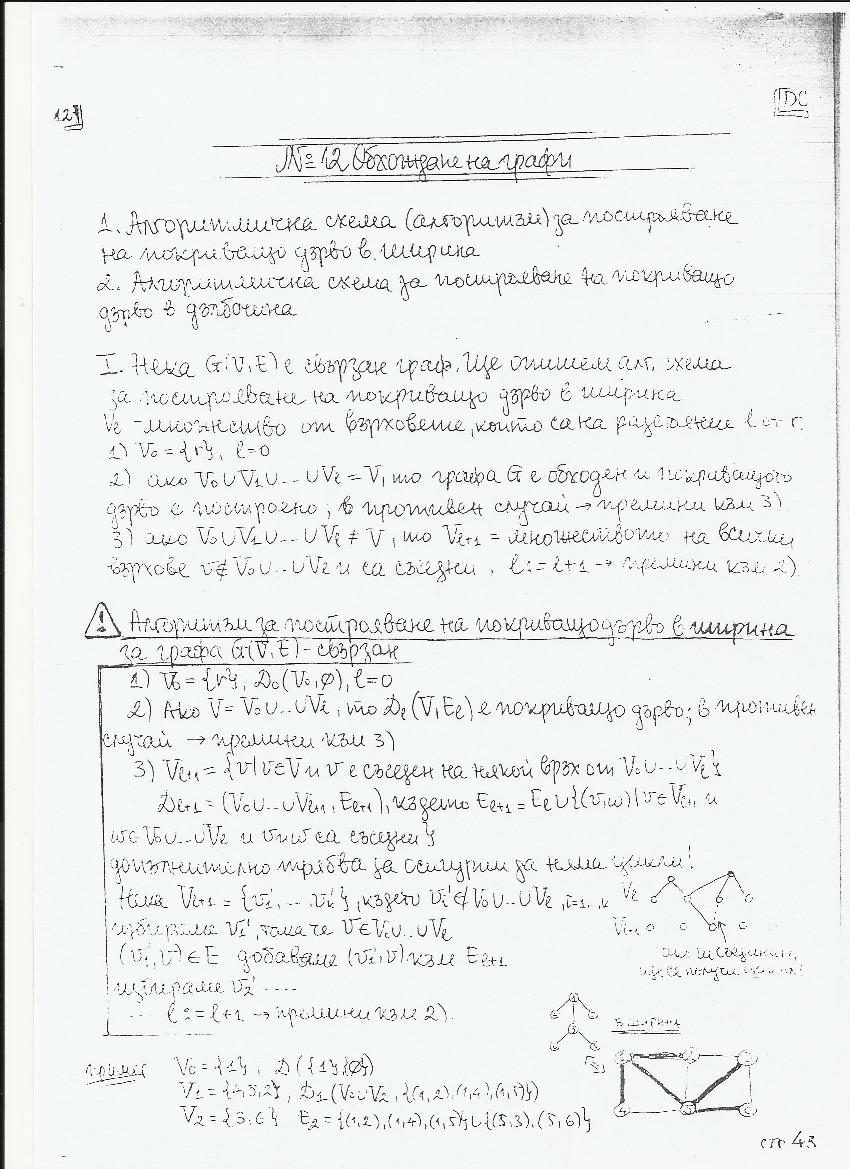 12]
ДС
№ 12 Обхождане на графи
1. Алгоритмична схема (алгоритъм) за построяване
на покриващо дърво в ширина
2. Алгоритмична схема за построяване на покриващо
дърво в дълбочина
I. Нека G(V,E) е свързан граф. Ще опишем алг. схема
за построяване на покриващо дърво в ширина
Vℓ - множество от върховете, които са на разстояние ℓ от r.
1) V₀ = {r}, ℓ=0
2) ако V₀∪V₁∪...∪Vℓ = V, то графа G е обходен и покриващото
дърво е построено; в противен случай → премини към 3)
3) ако V₀∪V₁∪...∪Vℓ ≠ V, то Vℓ₊₁ = множеството на всички
върхове v∉V₀∪...∪Vℓ и са съседни, ℓ:=ℓ+1 → премини към 2).
! Алгоритъм за построяване на покриващо дърво в ширина
за графа G(V,E) - свързан
1) V₀ = {r}, D₀(V₀,∅), ℓ=0
2) Ако V = V₀∪...∪Vℓ, то Dℓ(V,Eℓ) е покриващо дърво; в противен
случай → премини към 3)
3) Vℓ₊₁ = {v | v∈V и v е съседен на някой връх от V₀∪...∪Vℓ}
Dℓ₊₁ = (V₀∪...∪Vℓ₊₁, Eℓ₊₁), където Eℓ₊₁ = Eℓ∪{(v,w) | v∈Vℓ₊₁ и
w∈V₀∪...∪Vℓ и v и w са съседни}
допълнително трябва да осигурим да няма цикли!
Нека Vℓ₊₁ = {v₁', ... vₖ'}, където vᵢ'∉V₀∪...∪Vℓ, i=1..k
избираме v₁', така че v∈V₀∪...∪Vℓ
(v₁',v)∈E добаваме (v₁',v) към Eℓ₊₁
избираме v₂' ....
... ℓ:=ℓ+1 → премини към 2).
Vℓ
Vℓ₊₁
ако ги съединим,
ще се получи цикъл!
в ширина
1
4 5
пример V₀ = {1}, D({1}{∅})
V₁ = {4,5,2}, D₁(V₀∪V₂, {(1,2),(1,4),(1,5)})
V₂ = {3,6} E₂ = {(1,2),(1,4),(1,5)}∪{(5,3),(5,6)}
стр 43